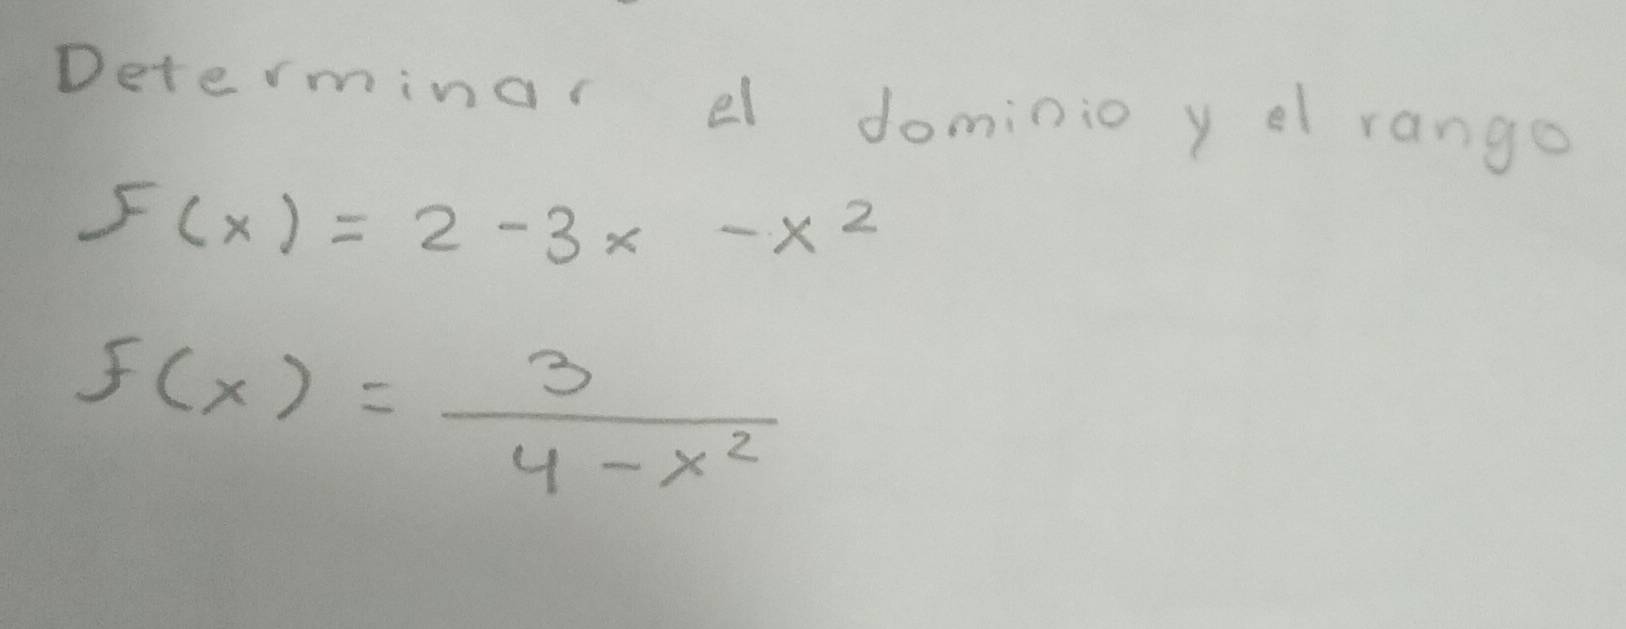 Determinar el dominio y el rango
F(x) = 2 - 3x - x²
F(x) = 3 / (4 - x²)